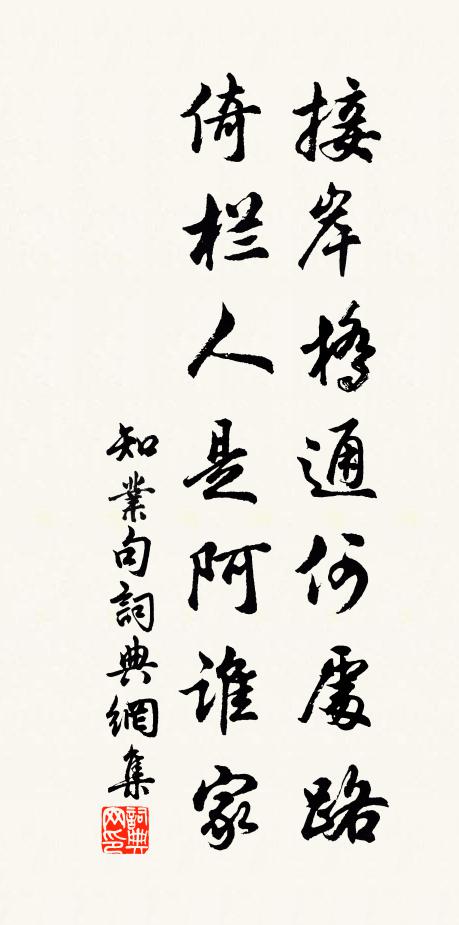 接岸橋通何處路
倚栏人是阿誰家
知業句詞典網集
詞典网印